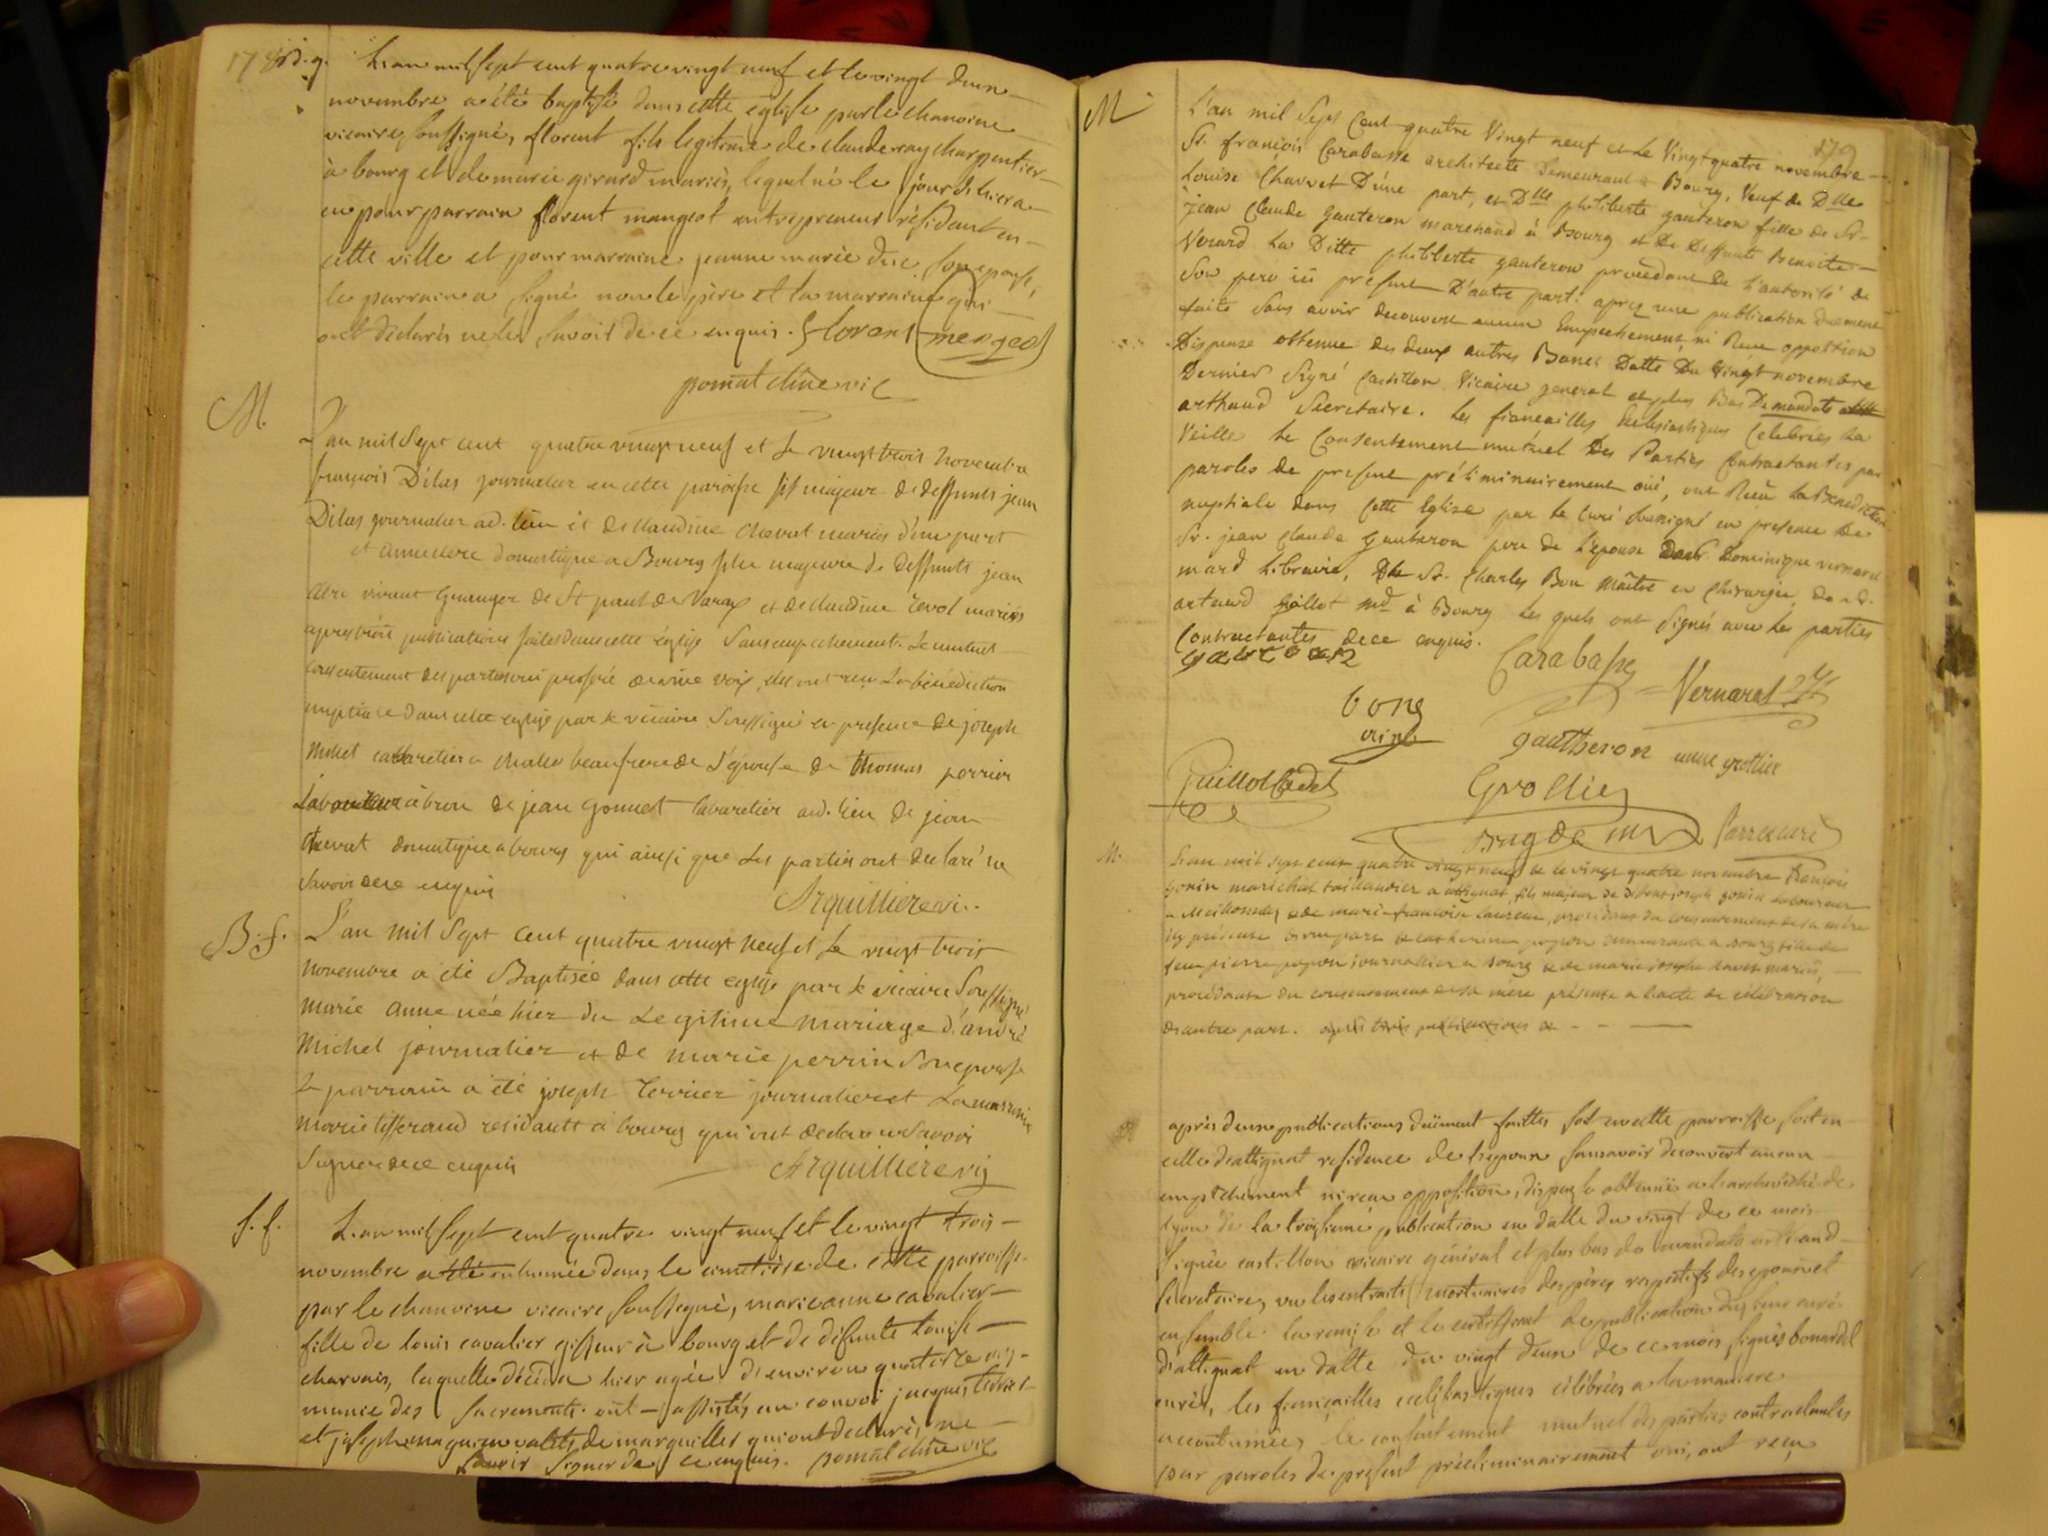 B.g. L'an mil sept cent quatre vingt neuf et le vingt deux
novembre a été baptisé dans cette église par le chanoine
vicaire soussigné, florent fils legitime de claude ray charpentier
à bourg et de marie girard mariés, lequel né le jour d'hier a
eu pour parrain florent mangeot entrepreneur résidant en
cette ville et pour marraine jeanne marie duc son epouse,
le parrain a signé non le père et la marraine qui
ont declarés ne le savoir de ce enquis. florant mengeot
pomat chne vic
M.
L'an mil Sept cent quatre vingt neuf et le vingt trois novembre
françois Dilas journalier en cette paroisse fils majeur de deffunts jean
Dilas journalier ad. lieu et de claudine chevat mariés d'une part
et anne domestique a Bourg fille majeure de deffunts jean
vivant granger de St paul de Varax et de claudine revol mariés
après trois publications faites dans cette église sans empechement. Le mutuel
consentement des parties oui proféré de vive voix, elles ont reçu La bénédiction
nuptiale dans cette eglise par le vicaire Soussigné en presence de joseph
millet cabaretier a beaufrere de L'épouse de thomas perrier
Laboureur à bron de jean gonnet cabaretier aud. lieu de jean
chevat domestique a bourg qui ainsi que les parties ont declaré ne
savoir de ce enquis
Arquilliere vi.
B.f. L'an mil Sept cent quatre vingt neuf et Le vingt trois
novembre a été Baptisée dans cette eglise par le vicaire Soussigné
marie anne née hier du Legitime mariage d'andré
michel journalier et de marie perrin Son epouse
Le parrain a été joseph terrier journalier et La marraine
marie tisserand residants à bourg qui ont declaré ne Savoir
Signer de ce enquis Arquilliere vic
f.f. L'an mil sept cent quatre vingt neuf et le vingt trois
novembre a été inhumée dans le cimetière de cette parroisse
par le chanoine vicaire soussigné, marie anne cavalier
fille de louis cavalier à bourg et de defunte louise
charvais, laquelle décéda hier agée d'environ quatorze ans
munie des sacrements. ont assistés au convoi jacques
et joseph valets de marguilles qui ont declarés ne
savoir signer de ce enquis. pomat chne vic
179
M
L'an mil Sept Cent quatre Vingt neuf et Le Vingt quatre novembre
Sr. françois Carabasse architecte Demeurant à Bourg, Veuf de Dlle
Louise Chauvet D'une part, et Dlle philiberte gauteron fille de Sr
jean Claude gauteron marchand à Bourg et De Deffunte Benoite
Verard La Ditte philiberte gauteron procedant De L'autorité de
Son pere ici présent D'autre part. après une publication duement
faite Sans avoir decouvert aucun Empechement ni Reçu opposition
Dispense obtenue des deux autres Bancs Datte Du Vingt novembre
Dernier Signé Castillon Vicaire general et plus Bas De mandato
arthaud Secretaire. Les fiancailles Eclesiastiques Celebrées La
Veille Le Consentement mutuel Des Parties Contractantes par
paroles de present préliminairement oüi, ont Reçu La Benediction
nuptiale dans Cette Eglise par Le Curé soussigné en presence De
Sr. jean Claude Gauteron pere de L'épouse Dominique vernarel
mard Libraire, Sr. Charles Bon Maître en Chirurgie,
artaud gillot md à Bourg Les quels ont Signés avec Les parties
Contractantes de ce enquis.
Carabasse
gauteron
Vernarel
bong
gautheron
anne grollier
Guillot Cadet
Grollier
Brugde
Parra curé
M.
L'an mil sept cent quatre vingt neuf et le vingt quatre novembre François
gonin marechal taillandier a attignat, fils majeur de Defunt joseph gonin laboureur
a Meillonnas et de marie françoise laurent, procédant du consentement de sa mère
icy présente d'une part et catherine pepon demeurante a bourg fille de
feu pierre pepon journalier a bourg et de marie josephe mariés,
procédante du consentement de sa mère présente a l'acte de célébration
d'autre part. après trois publications de
après deux publications duëment faittes soit en cette parroisse soit en
celle d'attignat residence de l'epoux sans avoir decouvert aucun
empêchement ni reçu opposition, dispense obtenuë a l'archevêché de
Lyon de la troisieme publication en datte du vingt de ce mois
Signée castillon vicaire général et plus bas de mandato arthaud
Secretaire, vu les extraits mortuaires des pères respectifs des epoux et
ensemble. la remise et le certificat de publication du sieur curé
d'attignat en datte du vingt deux de ce mois, signés bonardel
curé, les fiançailles eccléhastiques célébrées a la maniere
accoutumée, le consentement mutuel des parties contractantes
par paroles de présent préeliminairement oui, ont reçu